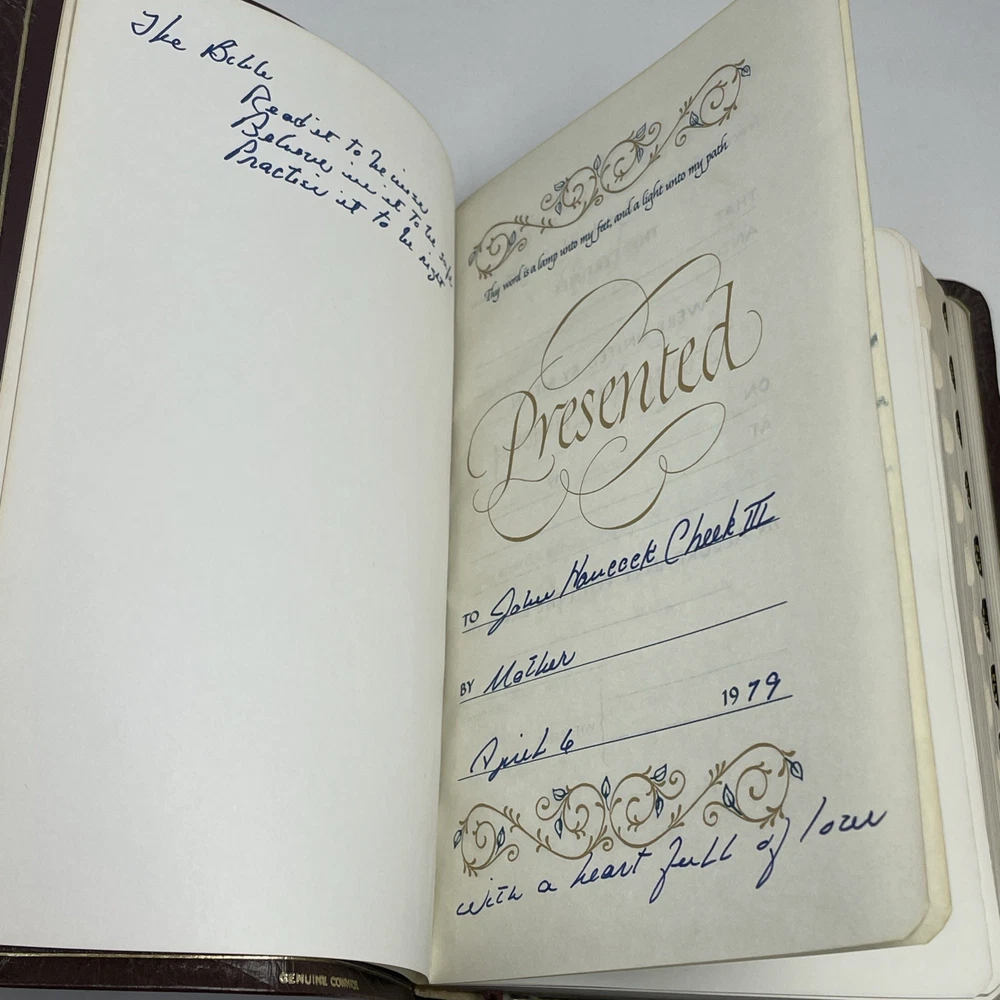 The Bible
Read it to be wise
Believe in it to be safe
Practise it to be right
Thy word is a lamp unto my feet, and a light unto my path.
Presented
TO John Hancock Cheek III
BY Mother
April 6 1979
with a heart full of love
GENUINE